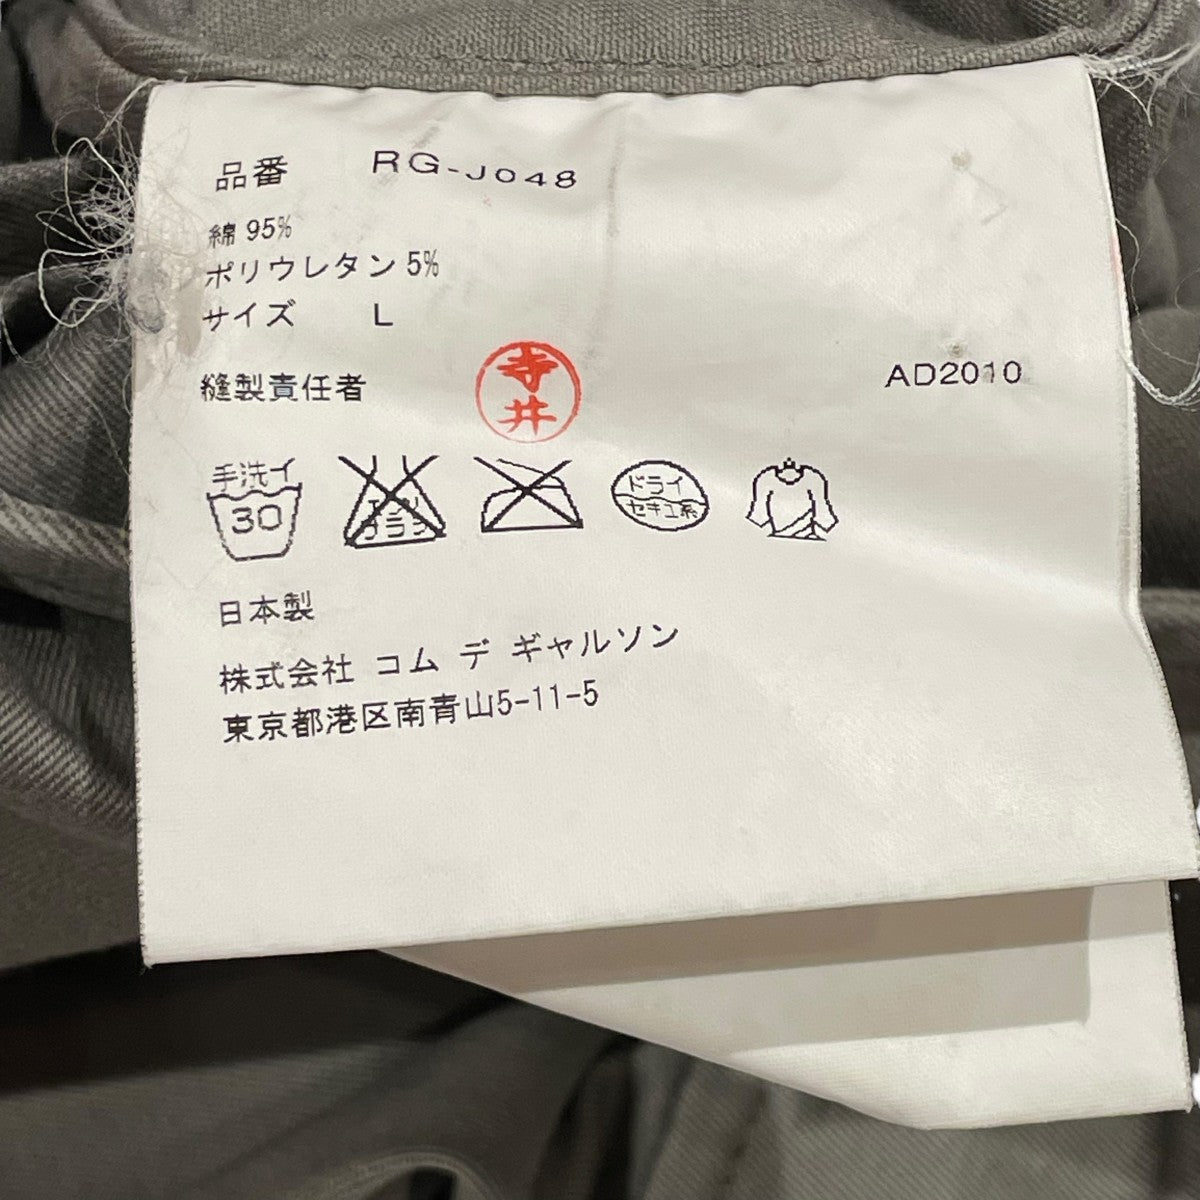 品番 RG-J048
綿 95%
ポリウレタン 5%
サイズ L
縫製責任者 寺井
AD2010
手洗イ 30
エンソ サラシ
ドライ セキユ系
日本製
株式会社 コム デ ギャルソン
東京都港区南青山5-11-5